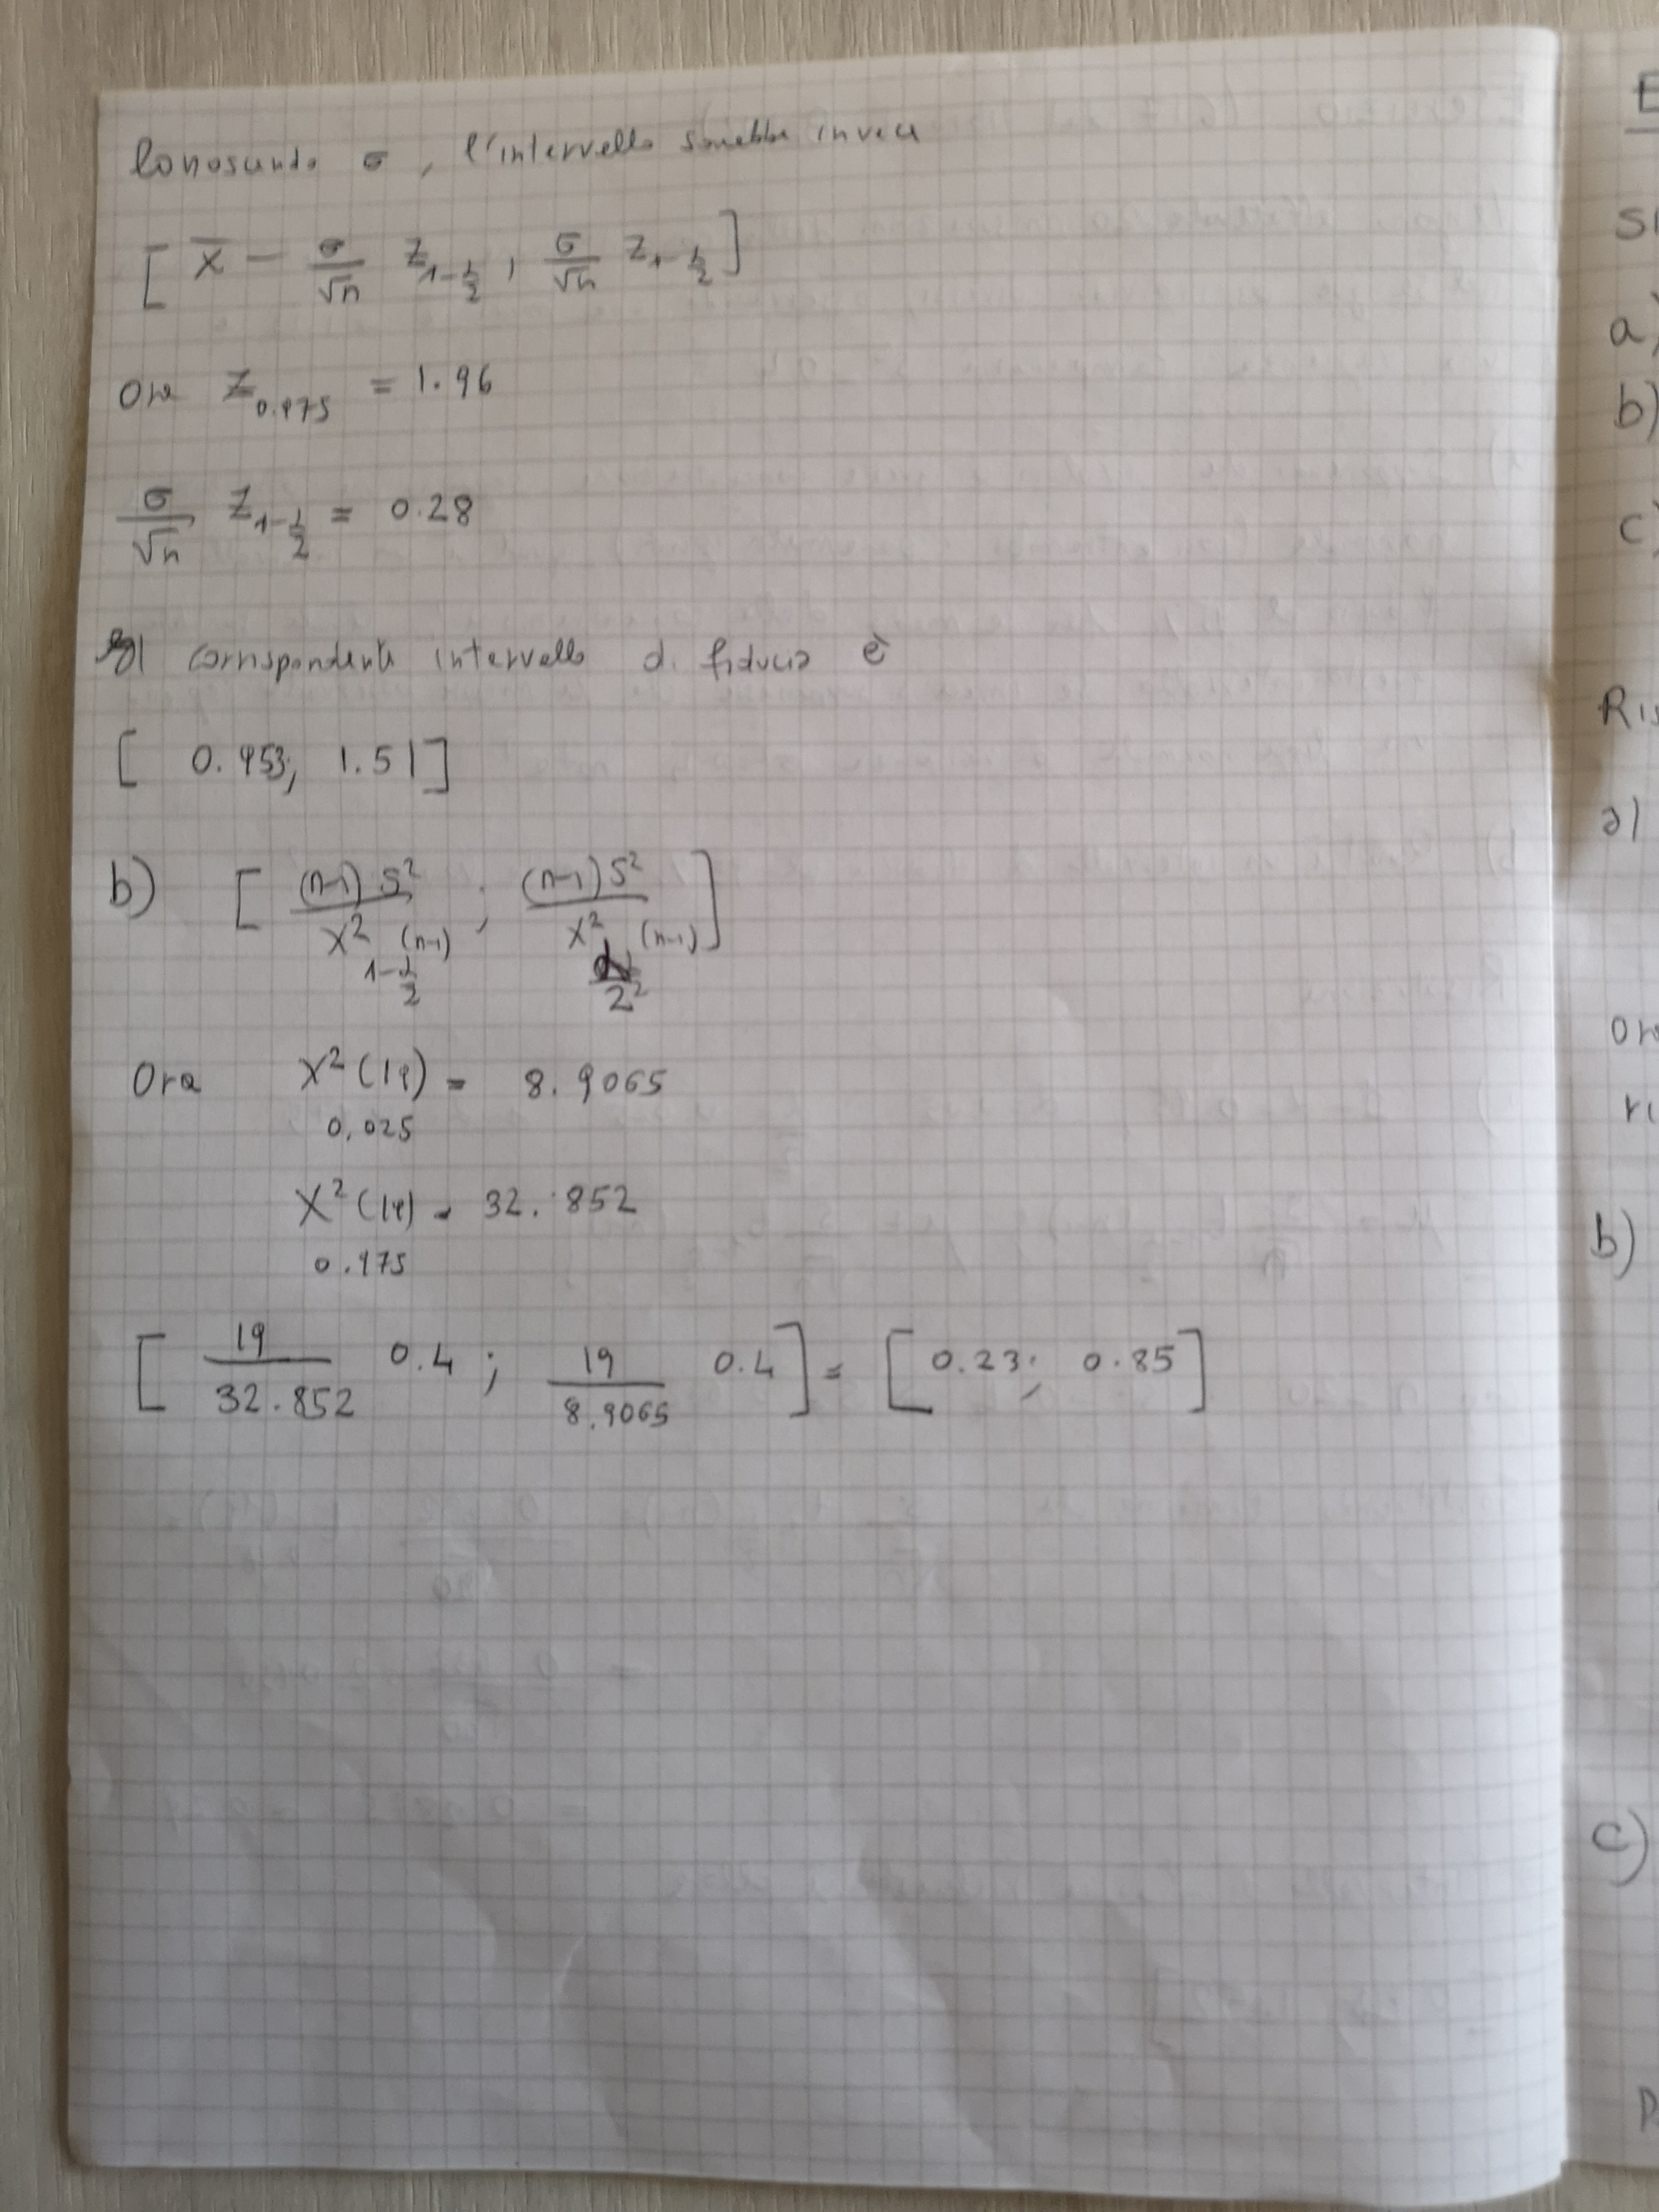 Conoscendo σ, l'intervallo sarebbe invece
[ x̄ - σ/√n z_{1-α/2} , σ/√n z_{1-α/2} ]
Ora z_{0.975} = 1.96
σ/√n z_{1-α/2} = 0.28
Il corrispondente intervallo di fiducia è
[ 0.953; 1.51 ]
b) [ (n-1)S²/χ²_{1-α/2}(n-1) ; (n-1)S²/χ²_{α/2}(n-1) ]
Ora χ²(19) = 8.9065
0.025
χ²(19) = 32.852
0.975
[ 19/32.852 0.4 ; 19/8.9065 0.4 ] = [ 0.23; 0.85 ]
E
a)
b)
c)
a)
b)
c)